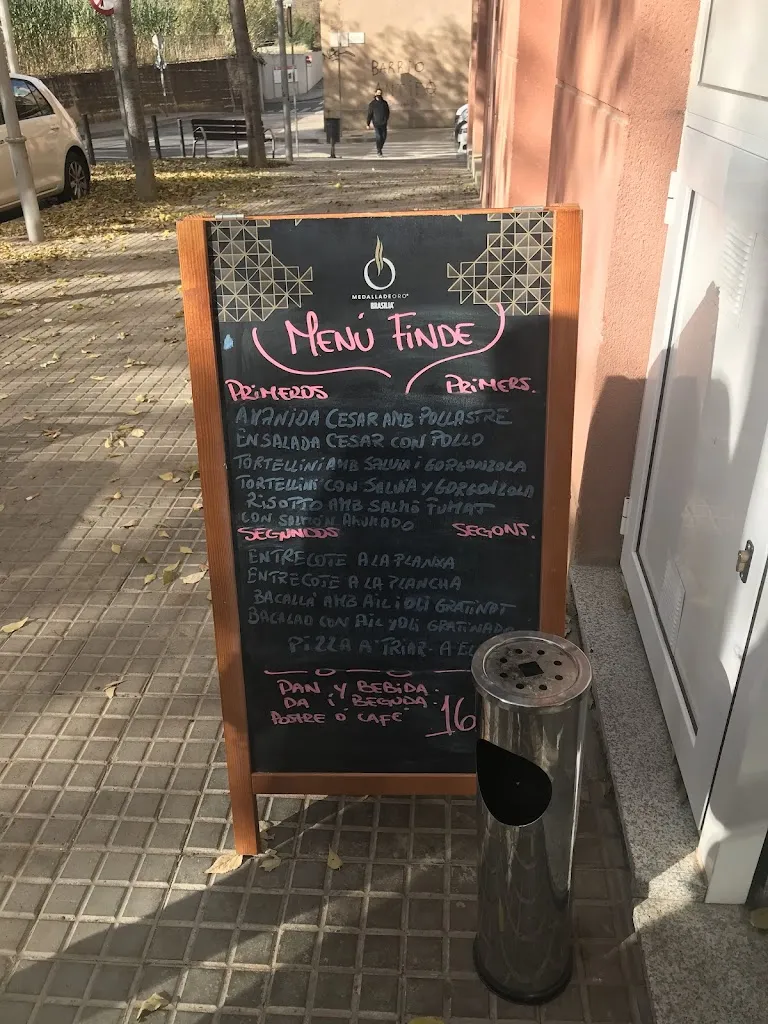 BARRIO
MEDALLADEORO®
BRASILIA
MENÚ FINDE
PRIMEROS PRIMERS.
AMANIDA CESAR AMB POLLASTRE
ENSALADA CESAR CON POLLO
TORTELLINI AMB SALVIA I GORGONZOLA
TORTELLINI CON SALVIA Y GORGONZOLA
RISOTTO AMB SALMÓ FUMAT
CON SALMÓN AHUMADO
SEGUNDOS SEGONS.
ENTRECOTE A LA PLANXA
ENTRECOTE A LA PLANCHA
BACALLÀ AMB ALL I OLI GRATINAT
BACALAO CON ALL Y OLI GRATINADO
PIZZA A TRIAR - A EL
PAN Y BEBIDA.
PA I BEGUDA.
POSTRE O CAFÉ 16